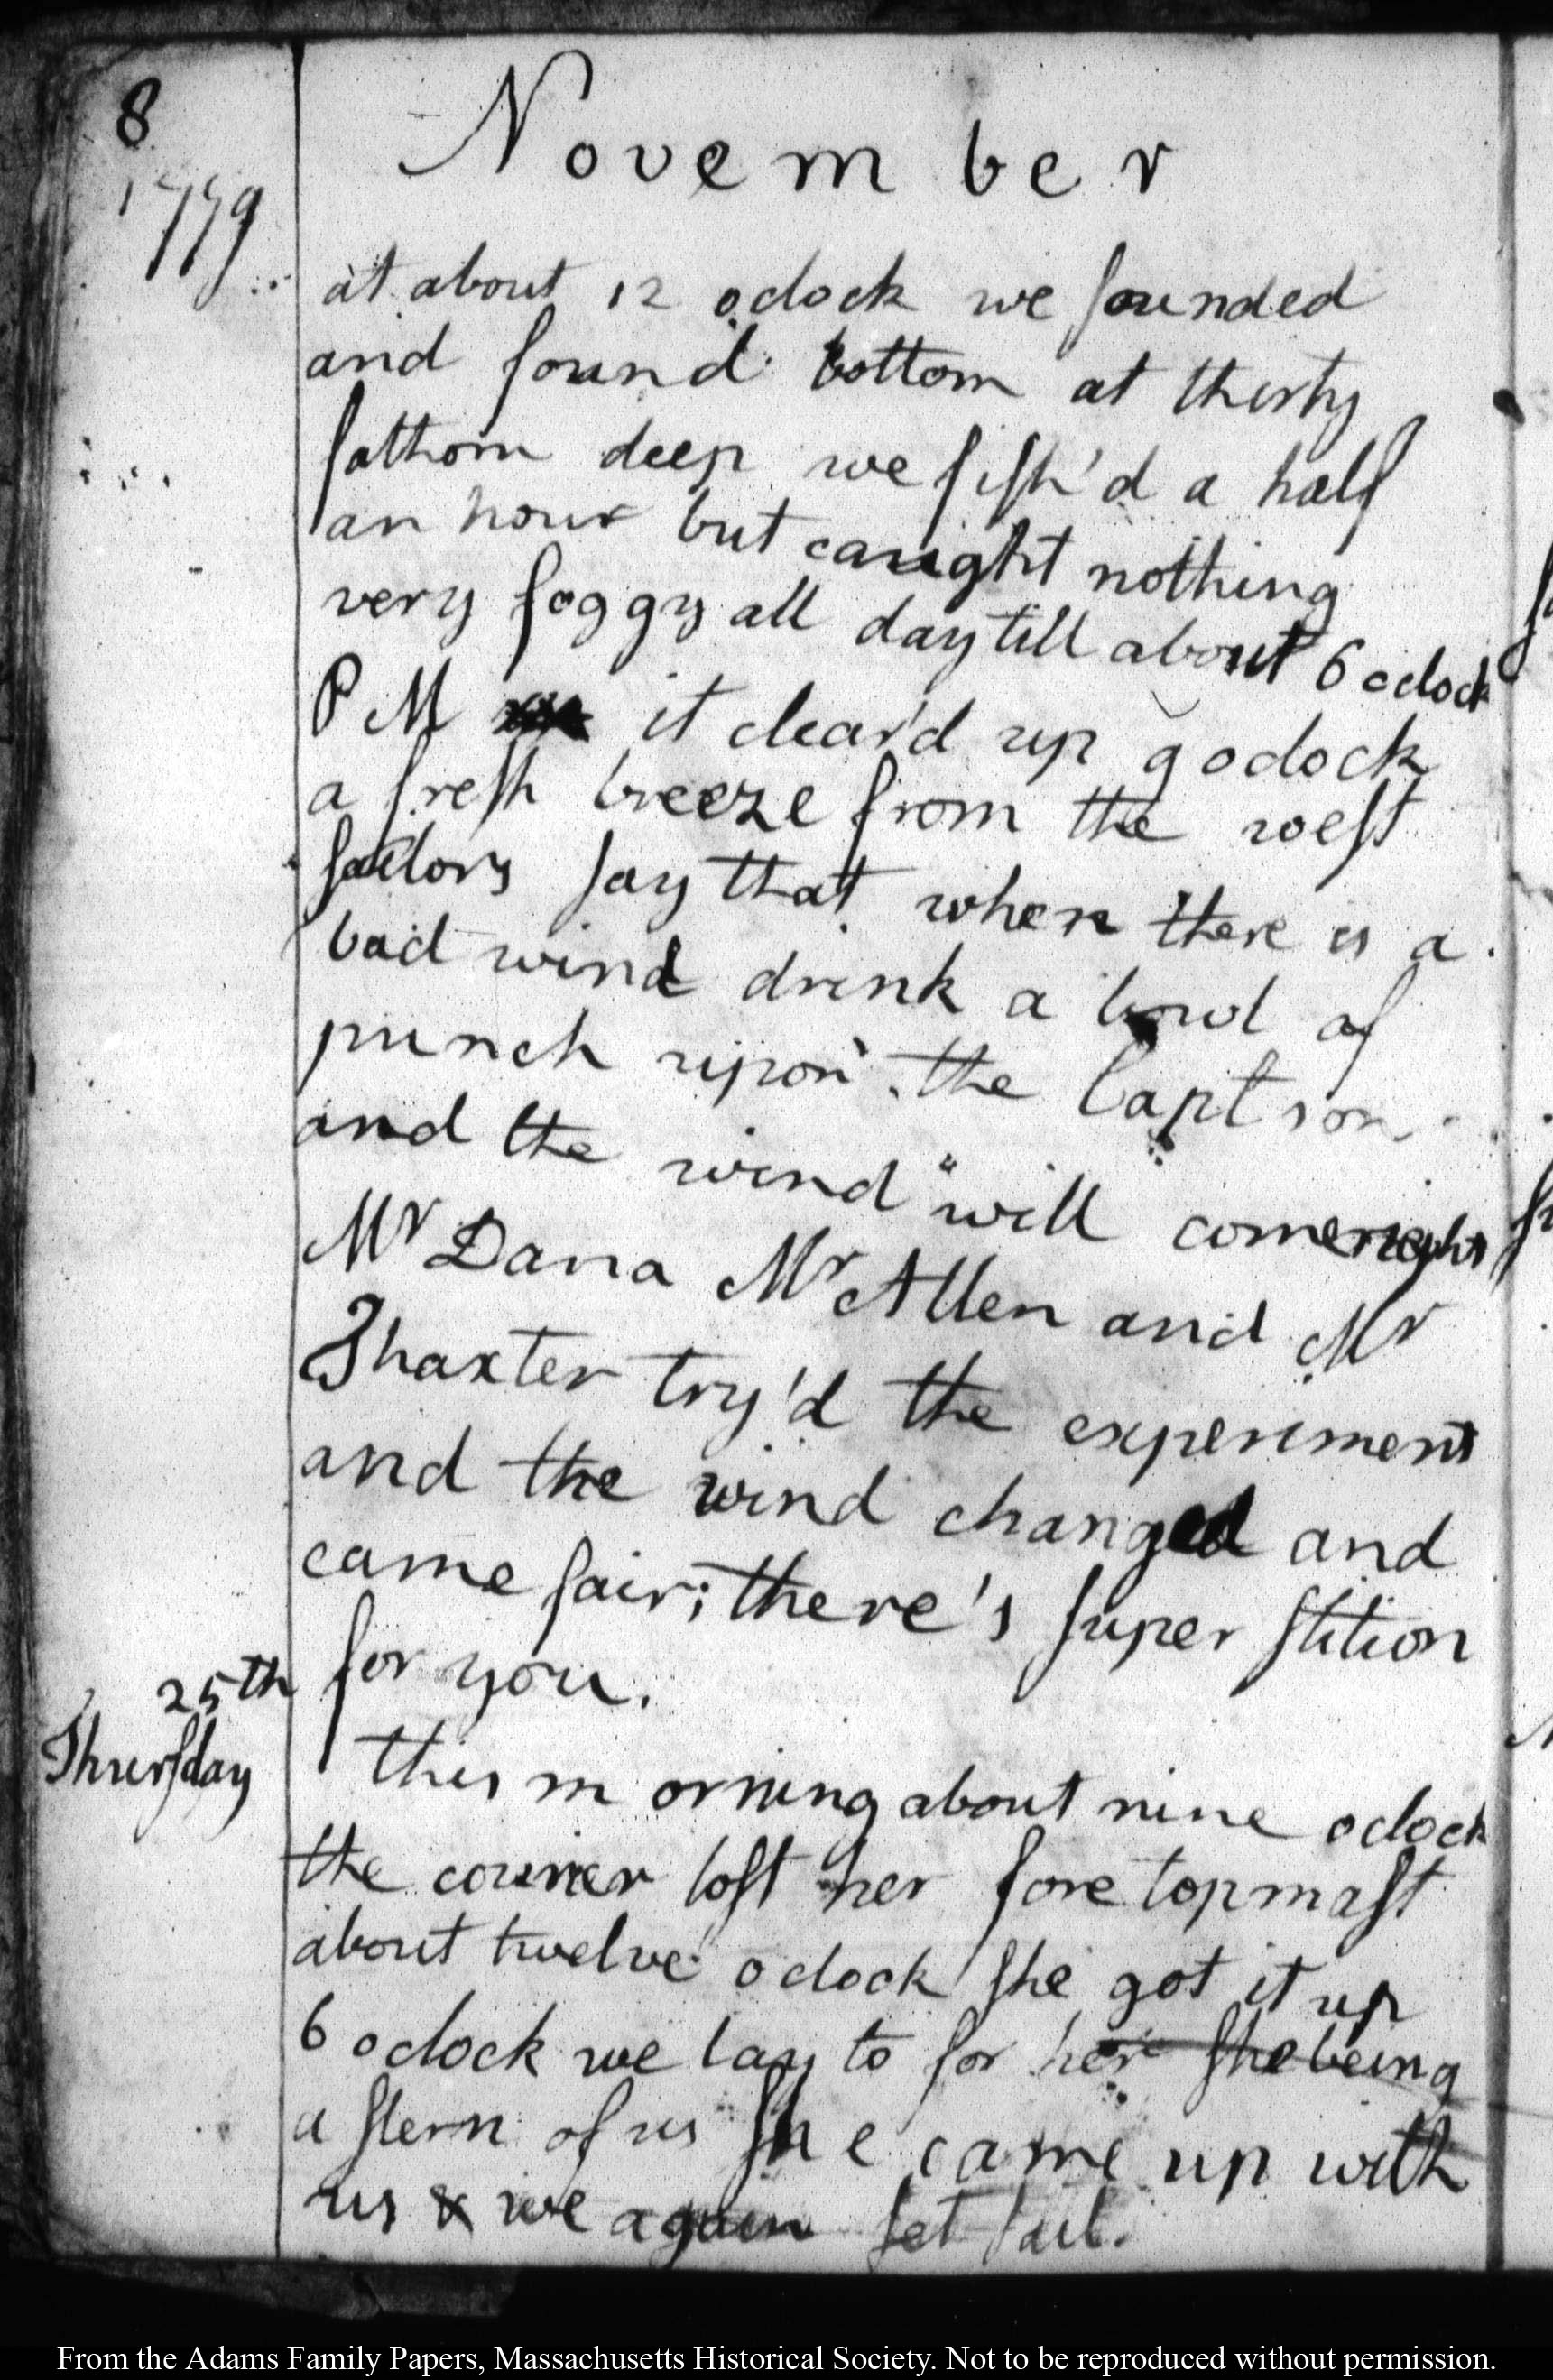 8
1779
November
at about 12 oclock we sounded
and found bottom at thirty
fathom deep we fish'd a half
an hour but caught nothing
very foggy all day till about 6 oclock
P M it clear'd up 9 oclock
a fresh breeze from the west
sailors say that when there is a
bad wind drink a bowl of
punch upon the Capt son
and the wind will come right
Mr Dana Mr Allen and Mr
Thaxter try'd the experiment
and the wind changed and
came fair; there's super stition
for you.
25th
Thursday
this m orning about nine oclock
the courier lost her fore topmast
about twelve oclock she got it up
6 oclock we lay to for her she being
a stern of us she came up with
us & we again set sail.
From the Adams Family Papers, Massachusetts Historical Society. Not to be reproduced without permission.